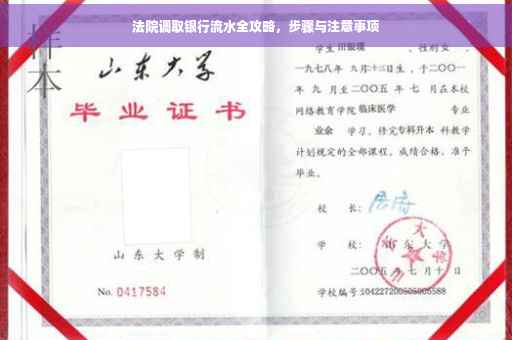 法院调取银行流水全攻略，步骤与注意事项
样本
山东大学
毕业证书
山东大学制
No. 0417584
学生田银瑛，性别女，
一九七八年九月十三日生，于二〇〇一
年九月至二〇〇五年七月在本校
网络教育学院临床医学专业
业余学习，修完专科升本科教学
计划规定的全部课程，成绩合格，准予
毕业。
校长：
学校：山东大学
二〇〇五年七月十日
学校编号:104227200505005588